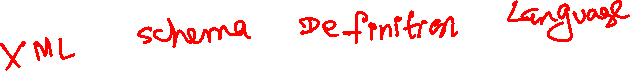 XML schema Definition Language